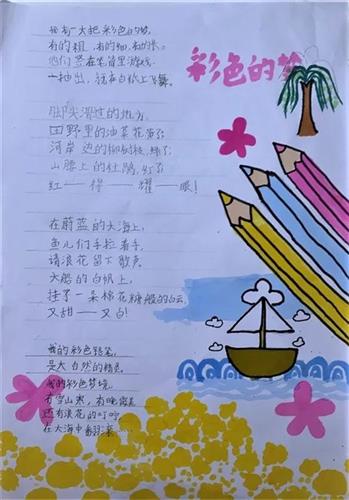 彩色的梦
我有一大把彩色的梦,
有的粗,有的细,
他们躲在笔盒里游戏,
一抽出,就在白纸上飞舞。
脚尖滑过的地方,
田野里的油菜花黄了;
河岸边的柳树枝,绿了;
山腰上的杜鹃,红了;
红——得——耀——眼!
在蔚蓝的大海上,
鱼儿们手拉着手,
请浪花留下歌声,
大船的白帆上,
挂了一朵棉花糖般的白云,
又甜——又白!
我的彩色铅笔,
是大自然的精灵。
我的彩色梦境,
有雪山寒,有晚霞
还有浪花的叮咛
在大海中翻滚……